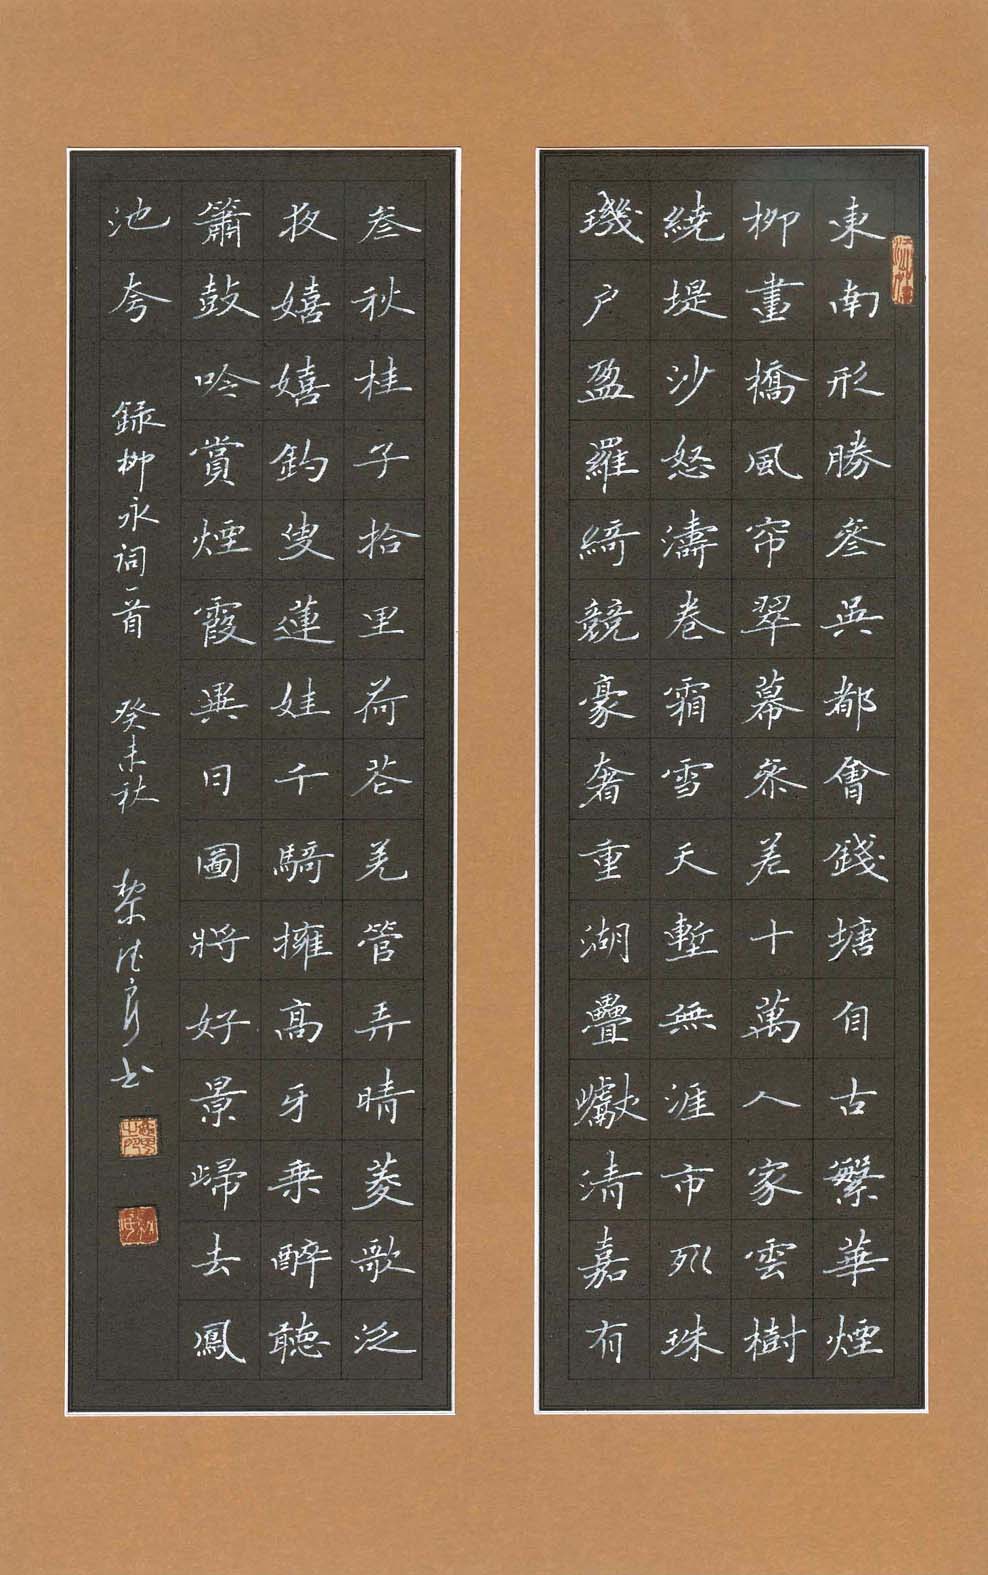 東南形勝叄吳都會錢塘自古繁華煙
柳畫橋風帘翠幕參差十萬人家雲樹
繞堤沙怒濤卷霜雪天塹無涯市列珠
璣户盈羅綺競豪奢重湖疊巘清嘉有
叄秋桂子拾里荷花羌管弄晴菱歌泛
夜嬉嬉釣叟蓮娃千騎擁高牙乘醉聽
簫鼓吟賞煙霞異日圖將好景歸去鳳
池夸 録柳永詞一首 癸未秋 书